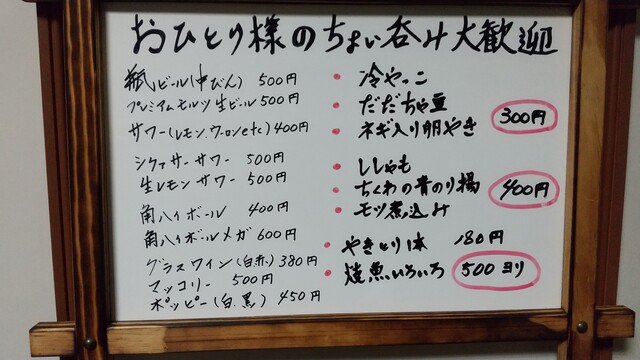 おひとり様のちょい呑み大歓迎
瓶ビール(中びん) 500円
プレミアムモルツ生ビール500円
サワー(レモン、ウーロンetc)400円
シークァサーサワー 500円
生レモンサワー 500円
角ハイボール 400円
角ハイボールメガ 600円
グラスワイン(白.赤)380円
マッコリー 500円
ホッピー(白.黒) 450円
・冷やっこ
・だだちゃ豆
・ネギ入り卵やき
300円
・ししゃも
・ちくわの青のり揚
・モツ煮込み
400円
・やきとり1本 180円
・焼魚いろいろ 500ヨリ